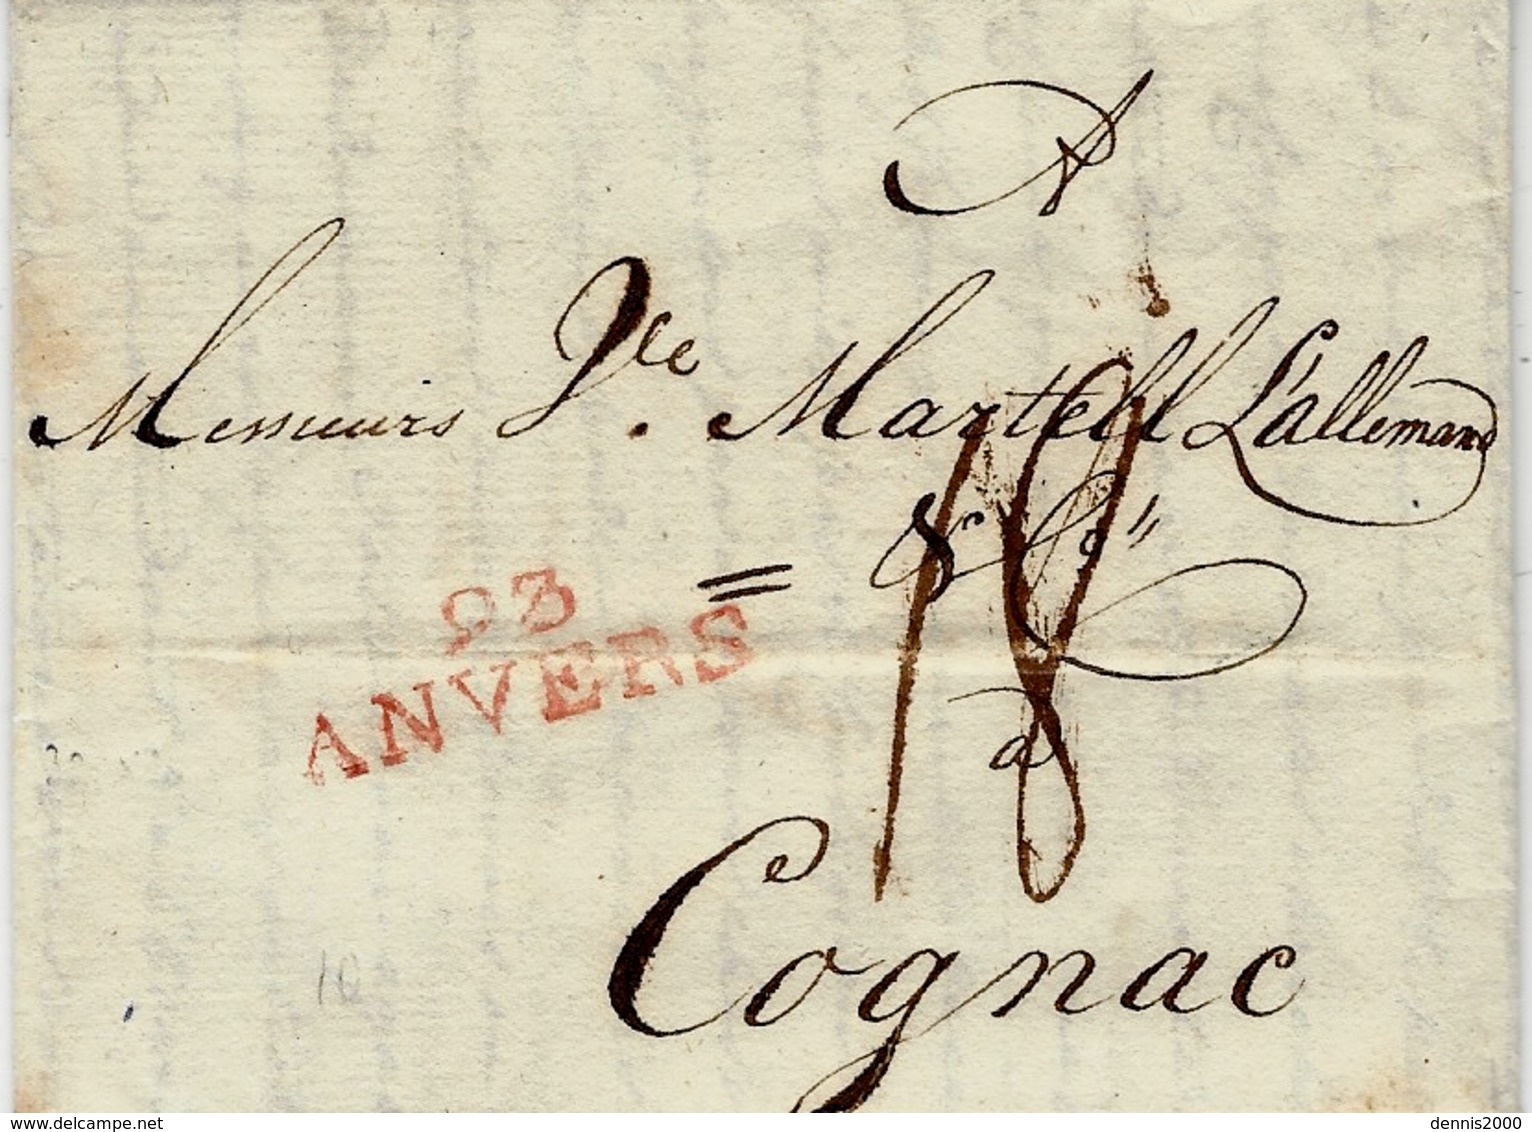 A
Messieurs Vve. Martell L'allemand
& Co"
=
18
93
ANVERS
a
Cognac
10
delcampe.net
dennis2000